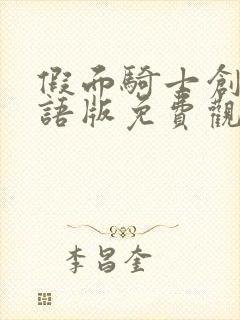 假面騎士創
語版免費觀
李昌奎